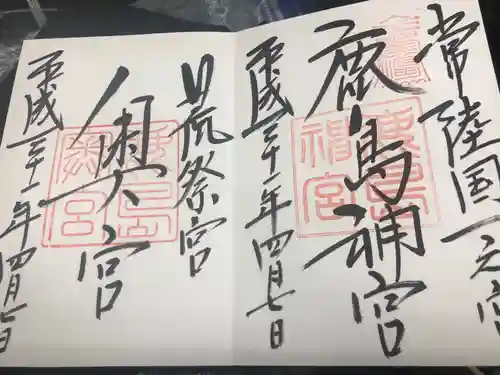 常陸国一之宮
鹿島神宮
平成三十一年四月七日
日荒祭宮
奥宮
平成三十一年四月七日
鹿島
神宮